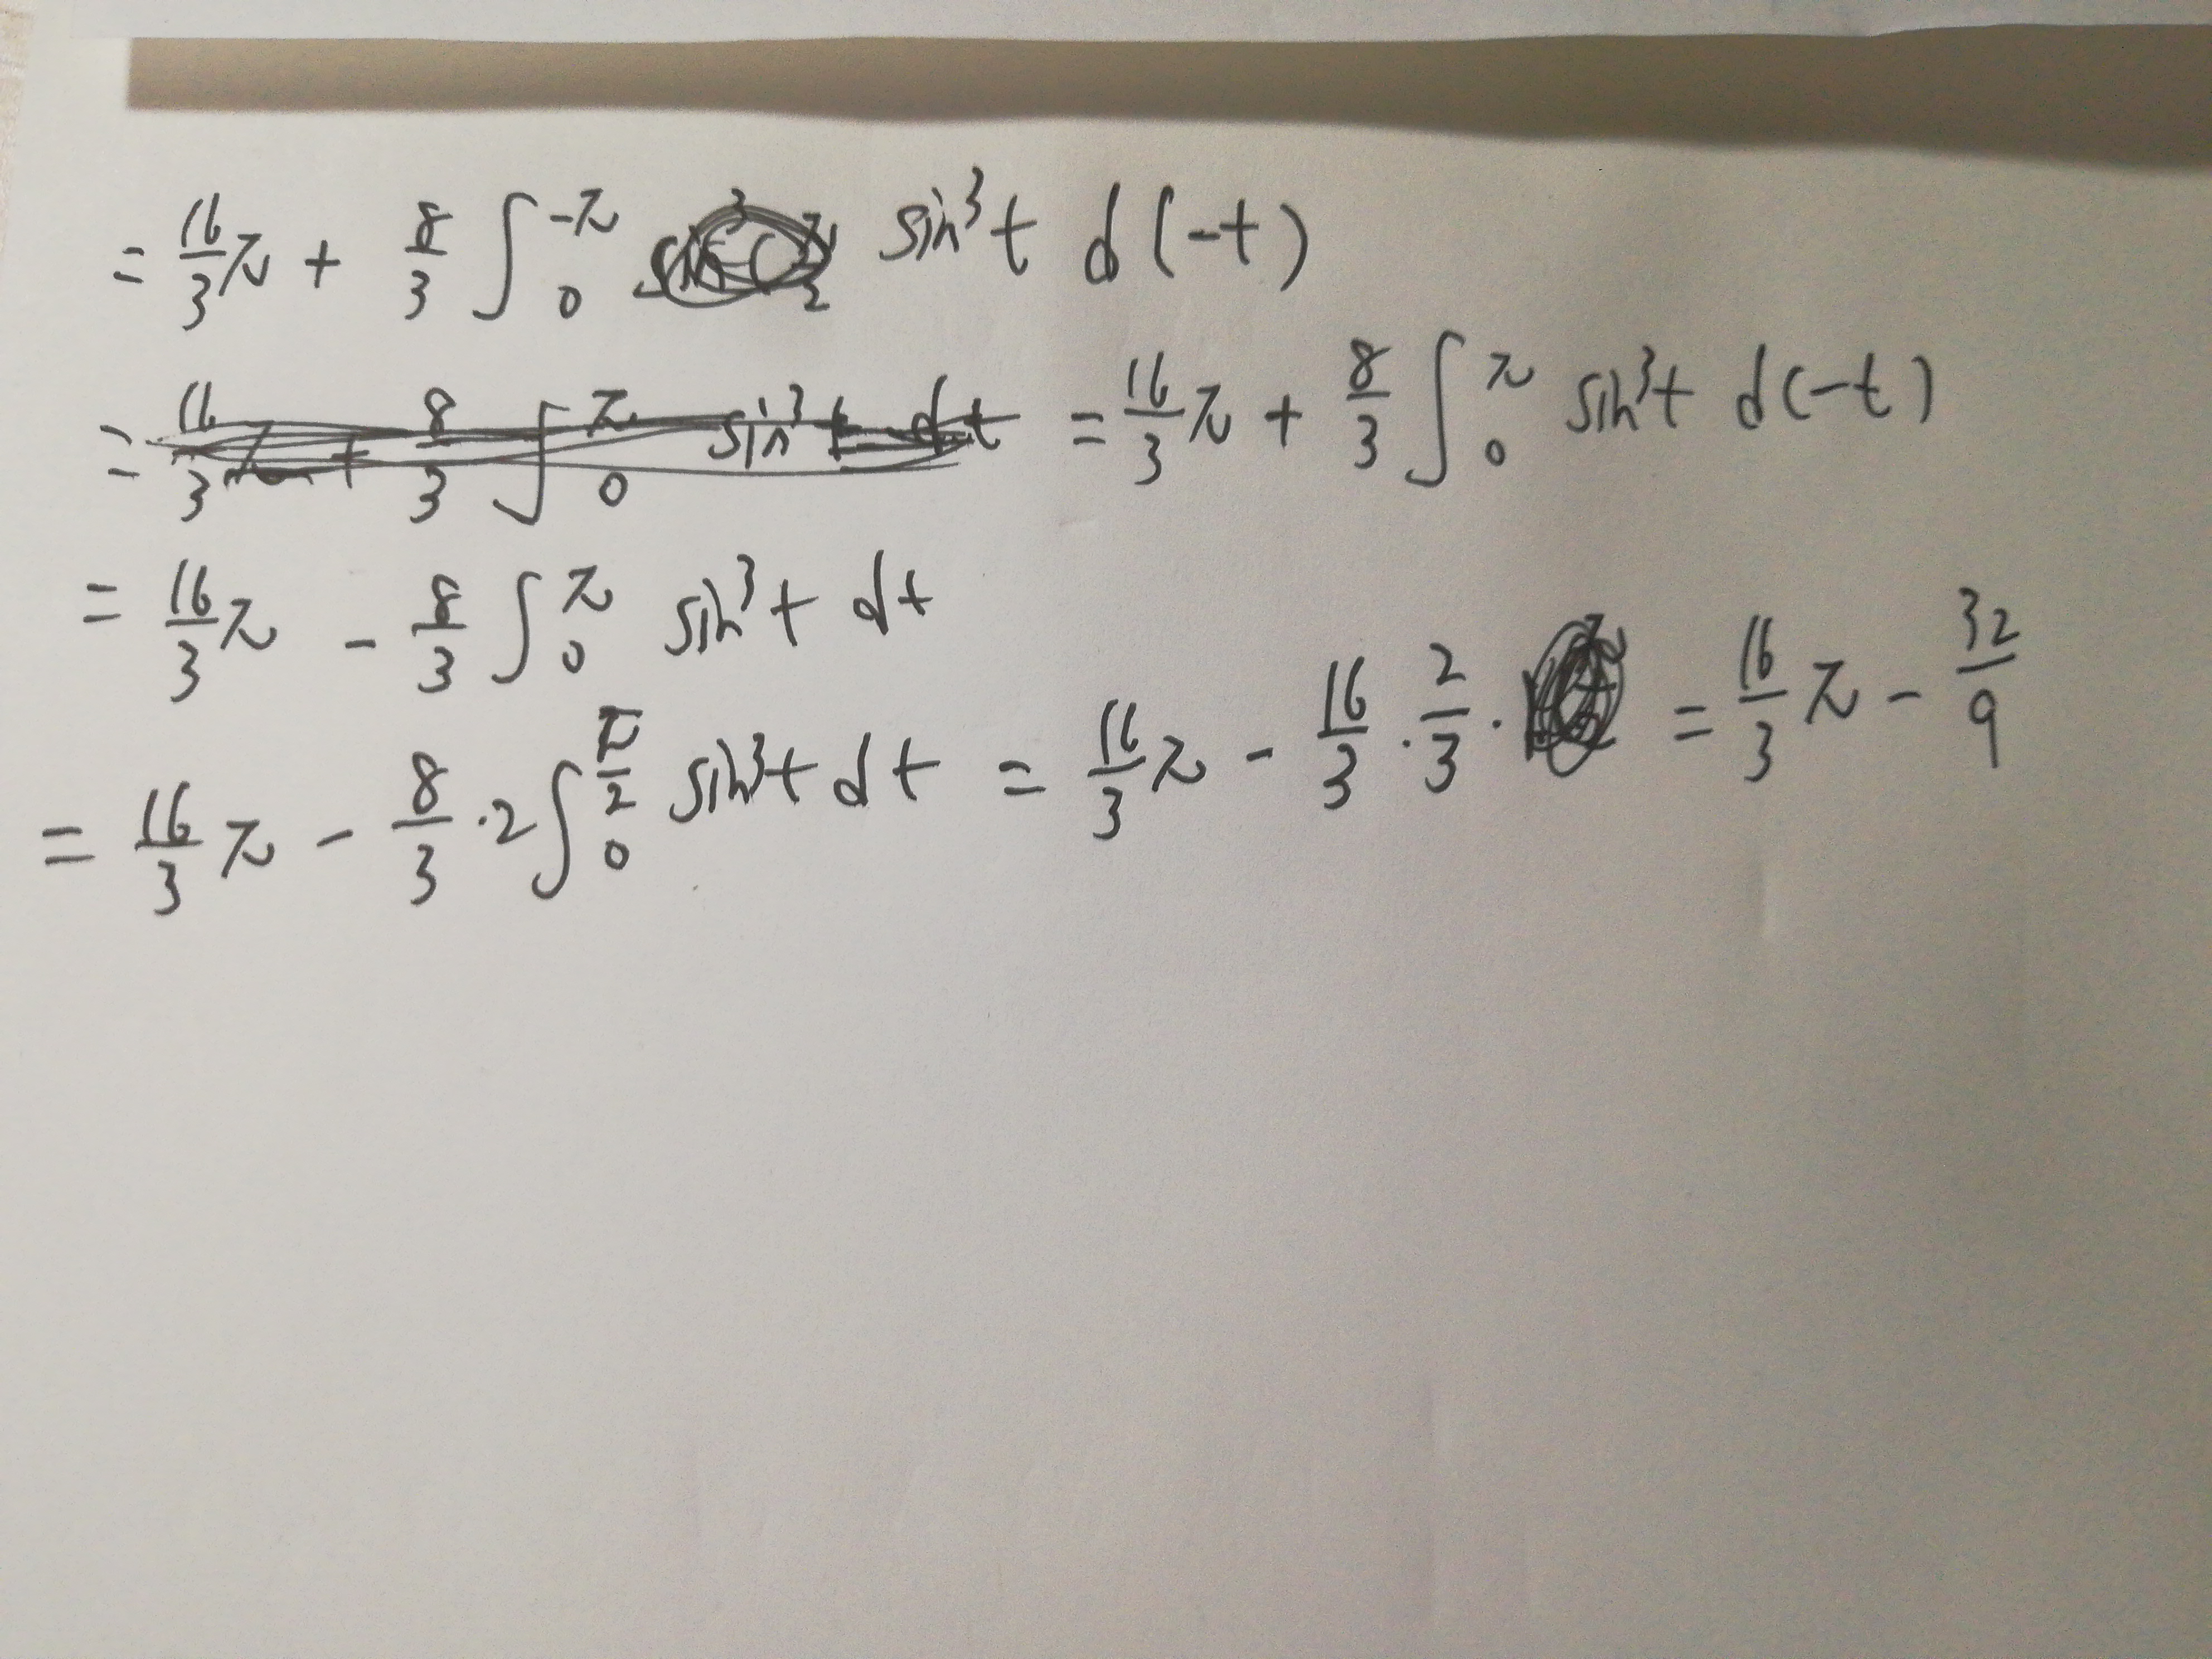 = 16/3 π + 8/3 ∫_0^{-π} sin³t d(-t)
= 16/3 π + 8/3 ∫_0^π sin³t dt = 16/3 π + 8/3 ∫_0^π sin³t d(-t)
= 16/3 π - 8/3 ∫_0^π sin³t dt
= 16/3 π - 8/3 · 2 ∫_0^{π/2} sin³t dt = 16/3 π - 16/3 · 2/3 · = 16/3 π - 32/9